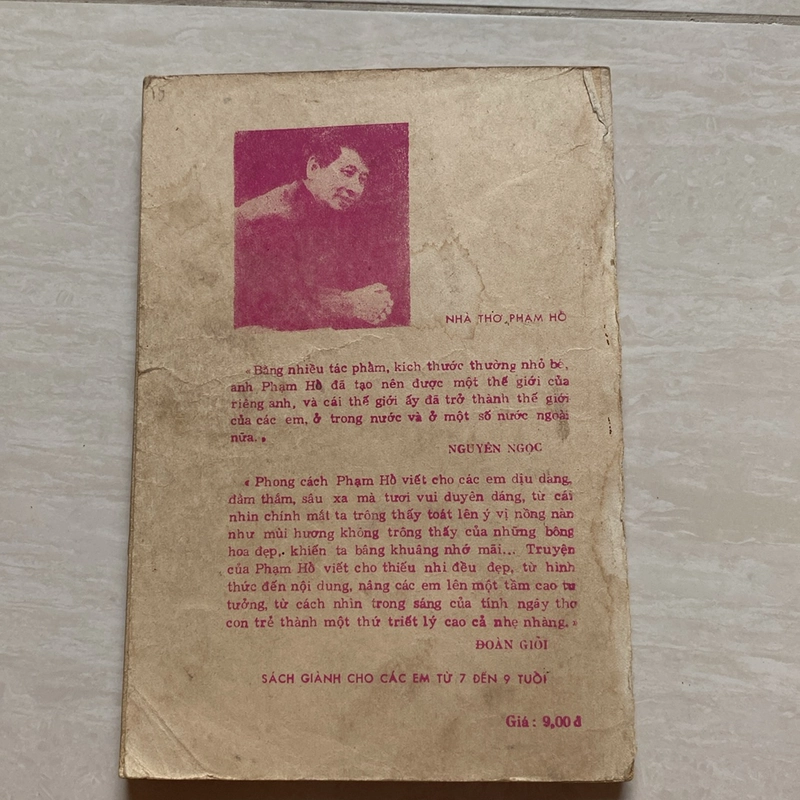 15
NHÀ THƠ PHẠM HỔ
«Bằng nhiều tác phẩm, kích thước thường nhỏ bé,
anh Phạm Hổ đã tạo nên được một thế giới của
riêng anh, và cái thế giới ấy đã trở thành thế giới
của các em, ở trong nước và ở một số nước ngoài
nữa.»
NGUYÊN NGỌC
« Phong cách Phạm Hổ viết cho các em dịu dàng,
đằm thắm, sâu xa mà tươi vui duyên dáng, từ cái
nhìn chính mắt ta trông thấy toát lên ý vị nồng nàn
như mùi hương không trông thấy của những bông
hoa đẹp, khiến ta bâng khuâng nhớ mãi... Truyện
của Phạm Hổ viết cho thiếu nhi đều đẹp, từ hình
thức đến nội dung, nâng các em lên một tầm cao tư
tưởng, từ cách nhìn trong sáng của tính ngây thơ
con trẻ thành một thứ triết lý cao cả nhẹ nhàng.»
ĐOÀN GIỎI
SÁCH GIÀNH CHO CÁC EM TỪ 7 ĐẾN 9 TUỔI
Giá : 9,00 đ